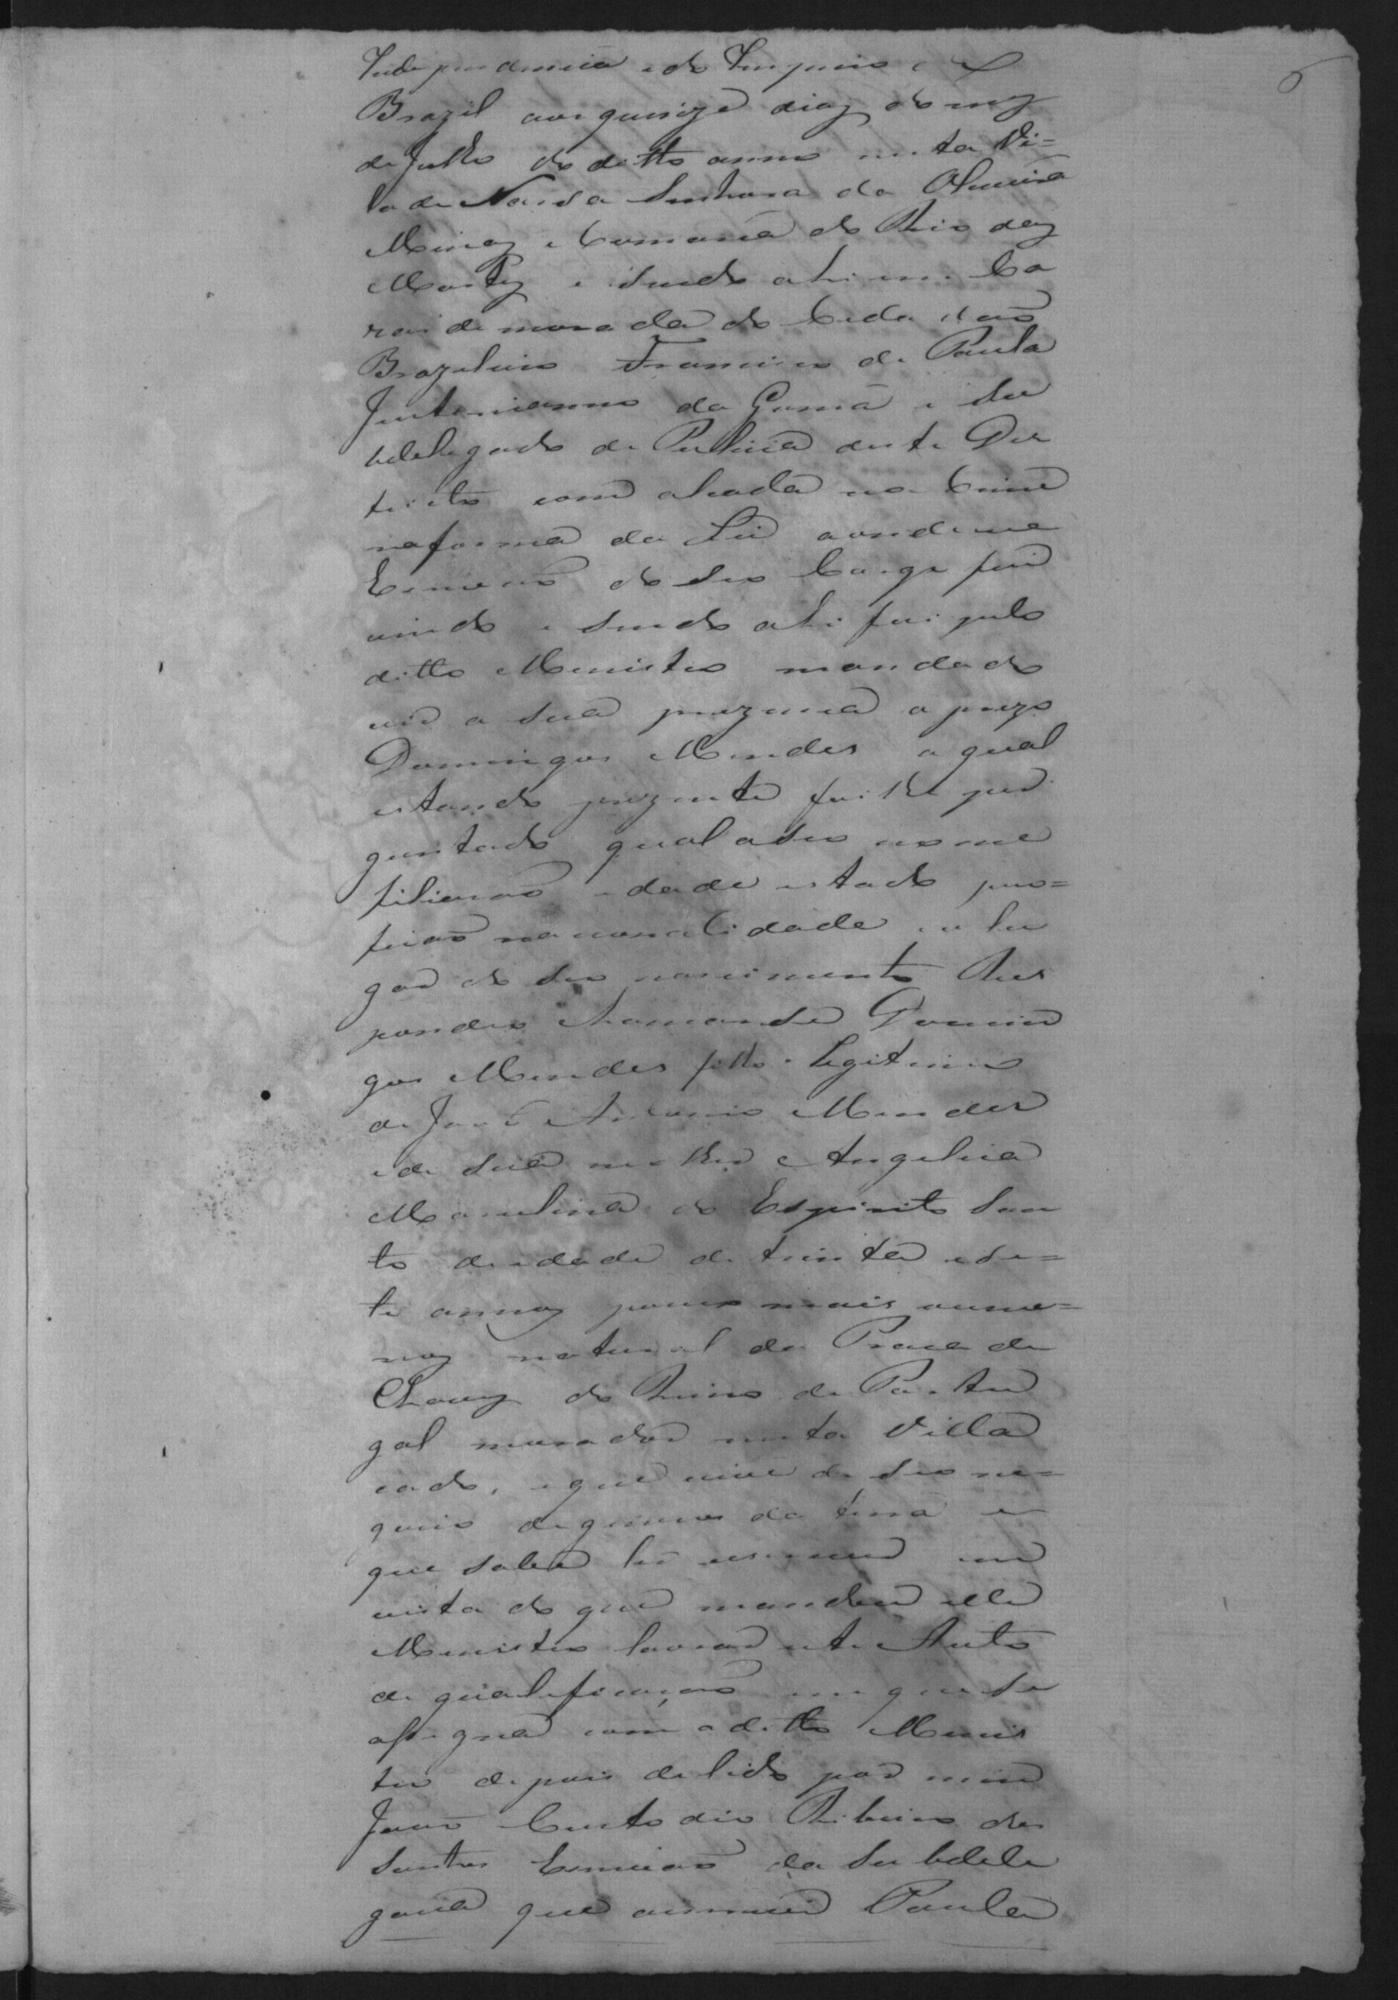 Independencia e do Imperio
Brazil aos quinze dias do mez
de Julho do ditto anno nesta Vi=
la de Nossa Senhora da Oliveira
Minas e Comarca do Rio das
Mortes e sendo ahi em Ca
zas de morada do Cidadaõ
Brazileiro Francisco de Paula
Justinianno da Gama e Su
bdelegado de Policia deste Des
tricto com alsada no Crime
na forma da Lei aonde eu
Escrivaõ do seu Cargo fui
vindo e sendo ahi foi pelo
ditto Menistro mandado
vir a sua prezenca o prezo
Domingos Mendes o qual
estando prezente foi lhe per
guntado qual o seu nome
filiaçaõ idade estado pro=
fiçaõ nacionalidade e o lu
gar do seu nascimento Res
pondeo chamarse Domin
gos Mendes filho Legitimo
de José Antonio Mendes
e de sua mulher Angelica
Marculina do Espirito San
to de idade de trinta e se=
te annos pouco mais ou me=
nos natural da Praca de
Chaves do Reino de Portu
gal morador nesta Villa
cado, e que vive de seo ne=
gocio de generos da terra e
que sabe ler escrever em
vista do que mandou elle
Menistro lavrar este Auto
de qualeficaçaõ em que se
assigna com o ditto Menis
tro depois de lido por mim
Joaõ Custodio Ribeiro dos
Santos Escrivaõ da Subdele
gacia que escrevi Paula